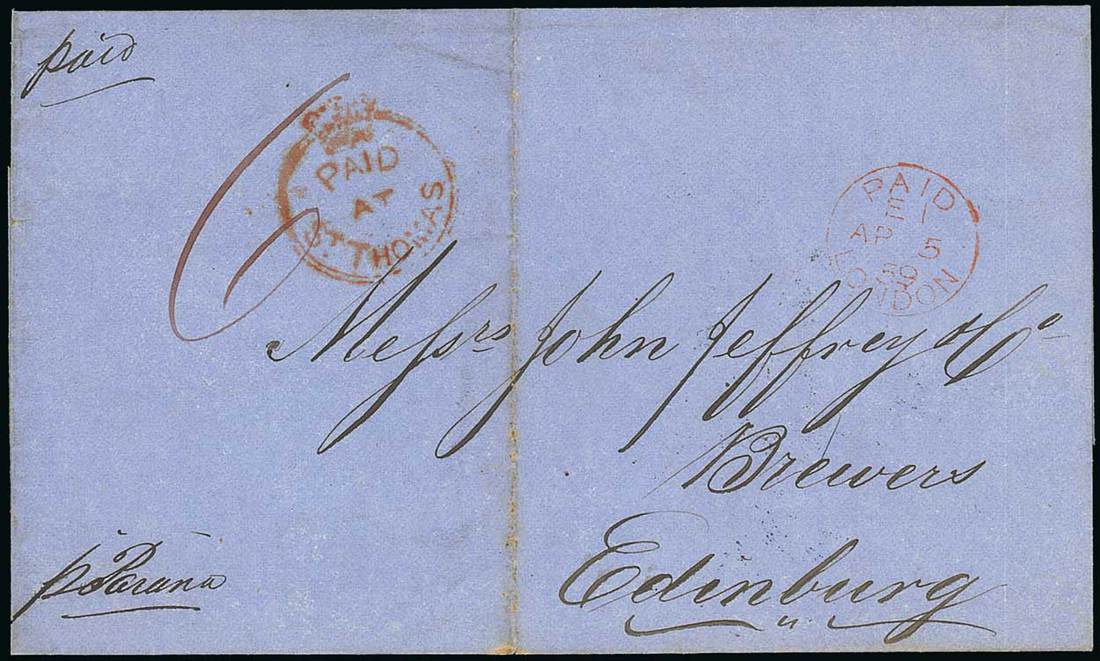 paid
6
PAID
AT
ST THOMAS
PAID
E I
AP 5
59
LONDON
Messrs John Jeffrey & Co
Brewers
Edinburg
p Parana